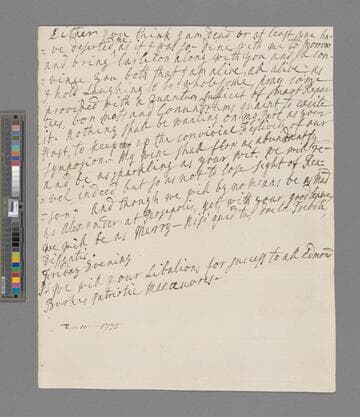 Either you think I am dead or at least you ha-
-ve deserted me as if I was so dine with me to morrow
and bring Carleton along with you and I'll con-
-vince you both that I am alive, as alive as
& hold Laughing to be wholesome pray come
provided with a quantum sufficit of smart repar-
tees, bon mots and Conundrums quaint to excite
it. Nothing shall be wanting on my part as your
Host, to keep up the convivial festivity of our
Symposion. My wine shall flow as abundantly
and be as sparkling as your wit. We will re-
-vel indeed but so as not to lose sight of Rea-
-son. And though we will by no means be as Mad
as Alexander at Persepolis, yet with your good leave
we will be as Merry — Nisi quid tu docte Trebati
Dissentis.
Friday Evening
We will pour Libations for success to all Edmond
Burke's patriotic Manœuvres.
1775